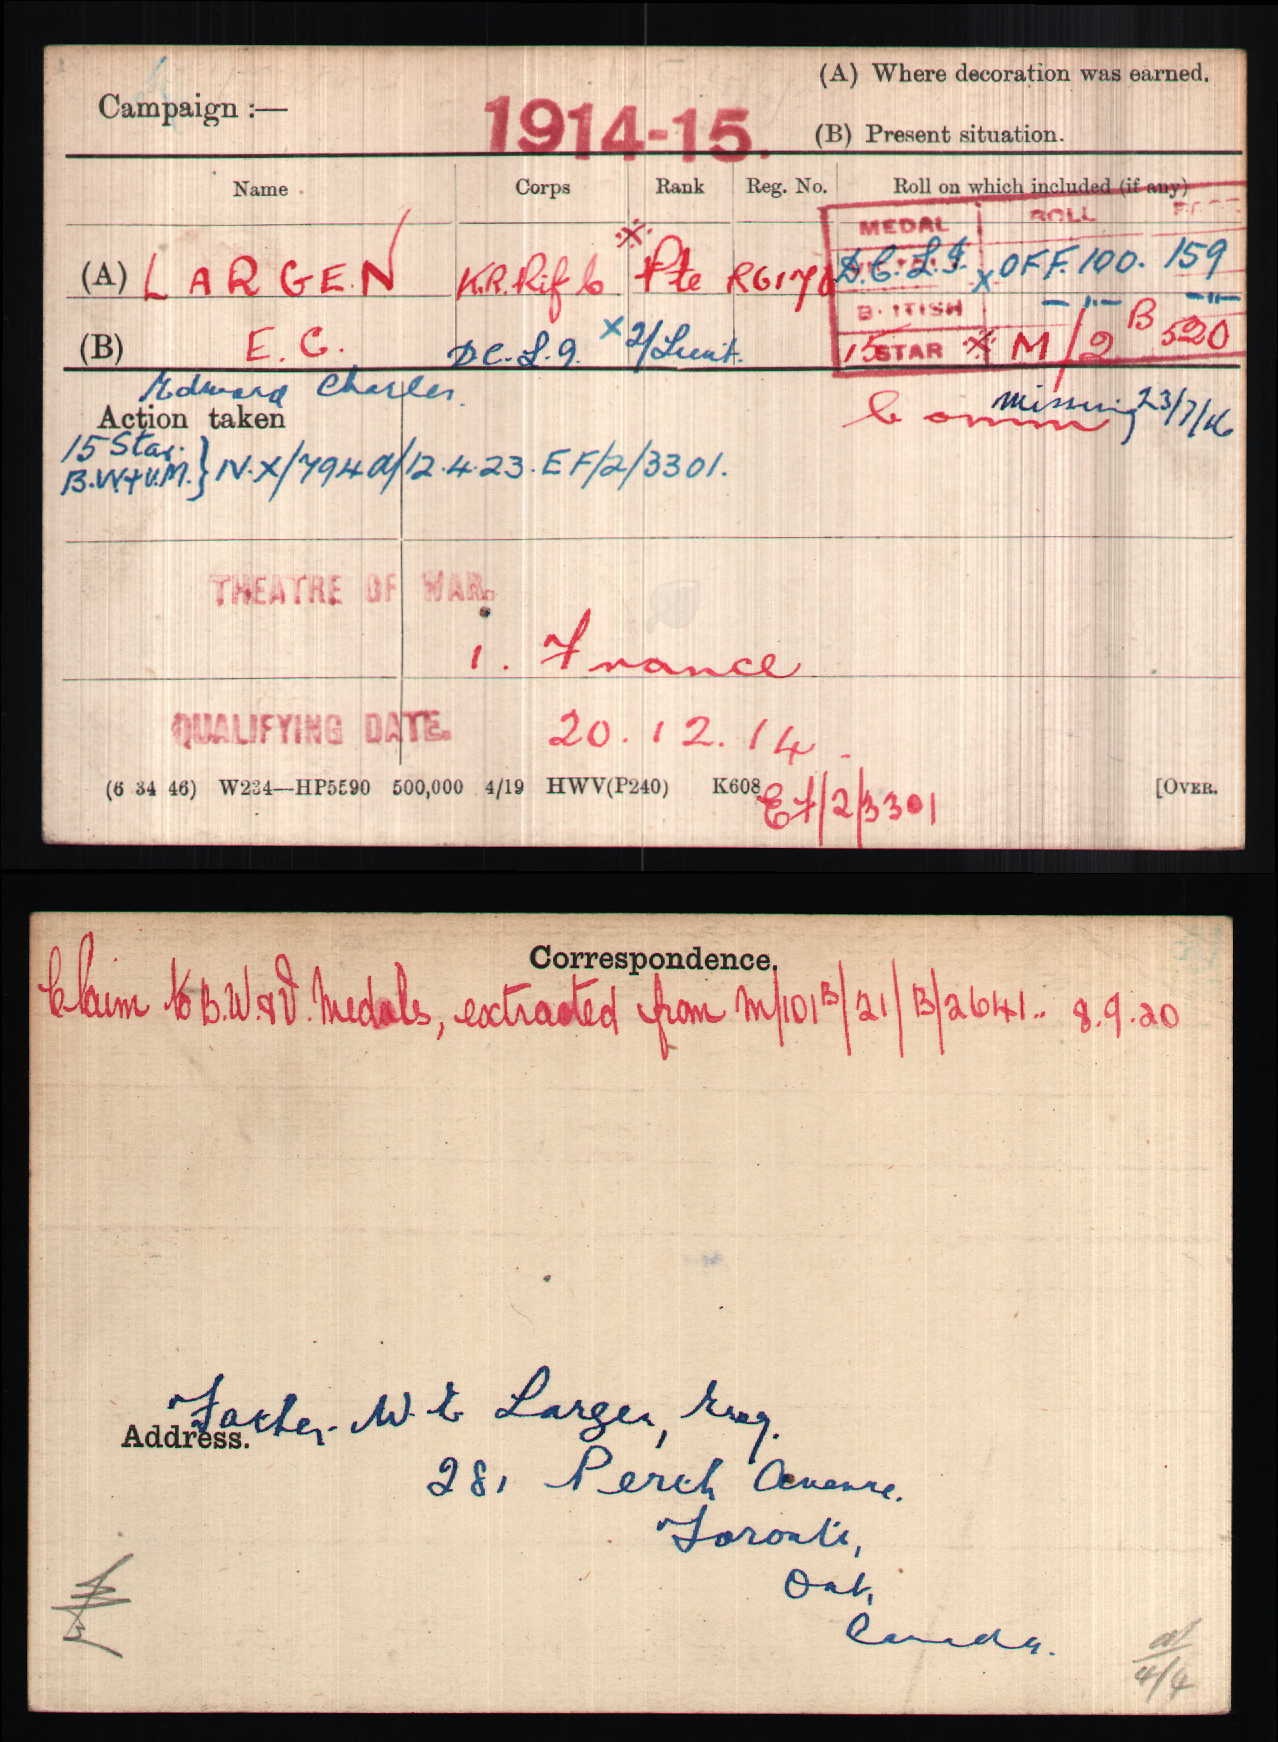 (A) Where decoration was earned.
Campaign :— 1914-15. (B) Present situation.
Name Corps Rank Reg. No. Roll on which included (if any)
MEDAL ROLL PAGE
(A) LARGEN K.R.Rif C ※ Pte R6170 D.C.L.I. x OFF. 100. 159
BRITISH —"— —"—
(B) E. C. D C. L. I. x 2/Lieut. 15 STAR ※ M/2 B 520
Edward Charles.
Action taken Comm missing 23/7/16
15 Star.
B.W+V.M. } IV.X/794a/12.4.23. EF/2/3301.
THEATRE OF WAR.
1. France
QUALIFYING DATE. 20.12.14.
(6 34 46) W234—HP5590 500,000 4/19 HWV(P240) K608 [OVER.
EF/2/3301
Correspondence.
Claim to B.W.&V. Medals, extracted from M/101B/21/B/2641.. 8.9.20
Father. W. E. Largen, Esq.
Address.
281 Perth Avenue.
Toronto,
Ont,
Canada.
4/4